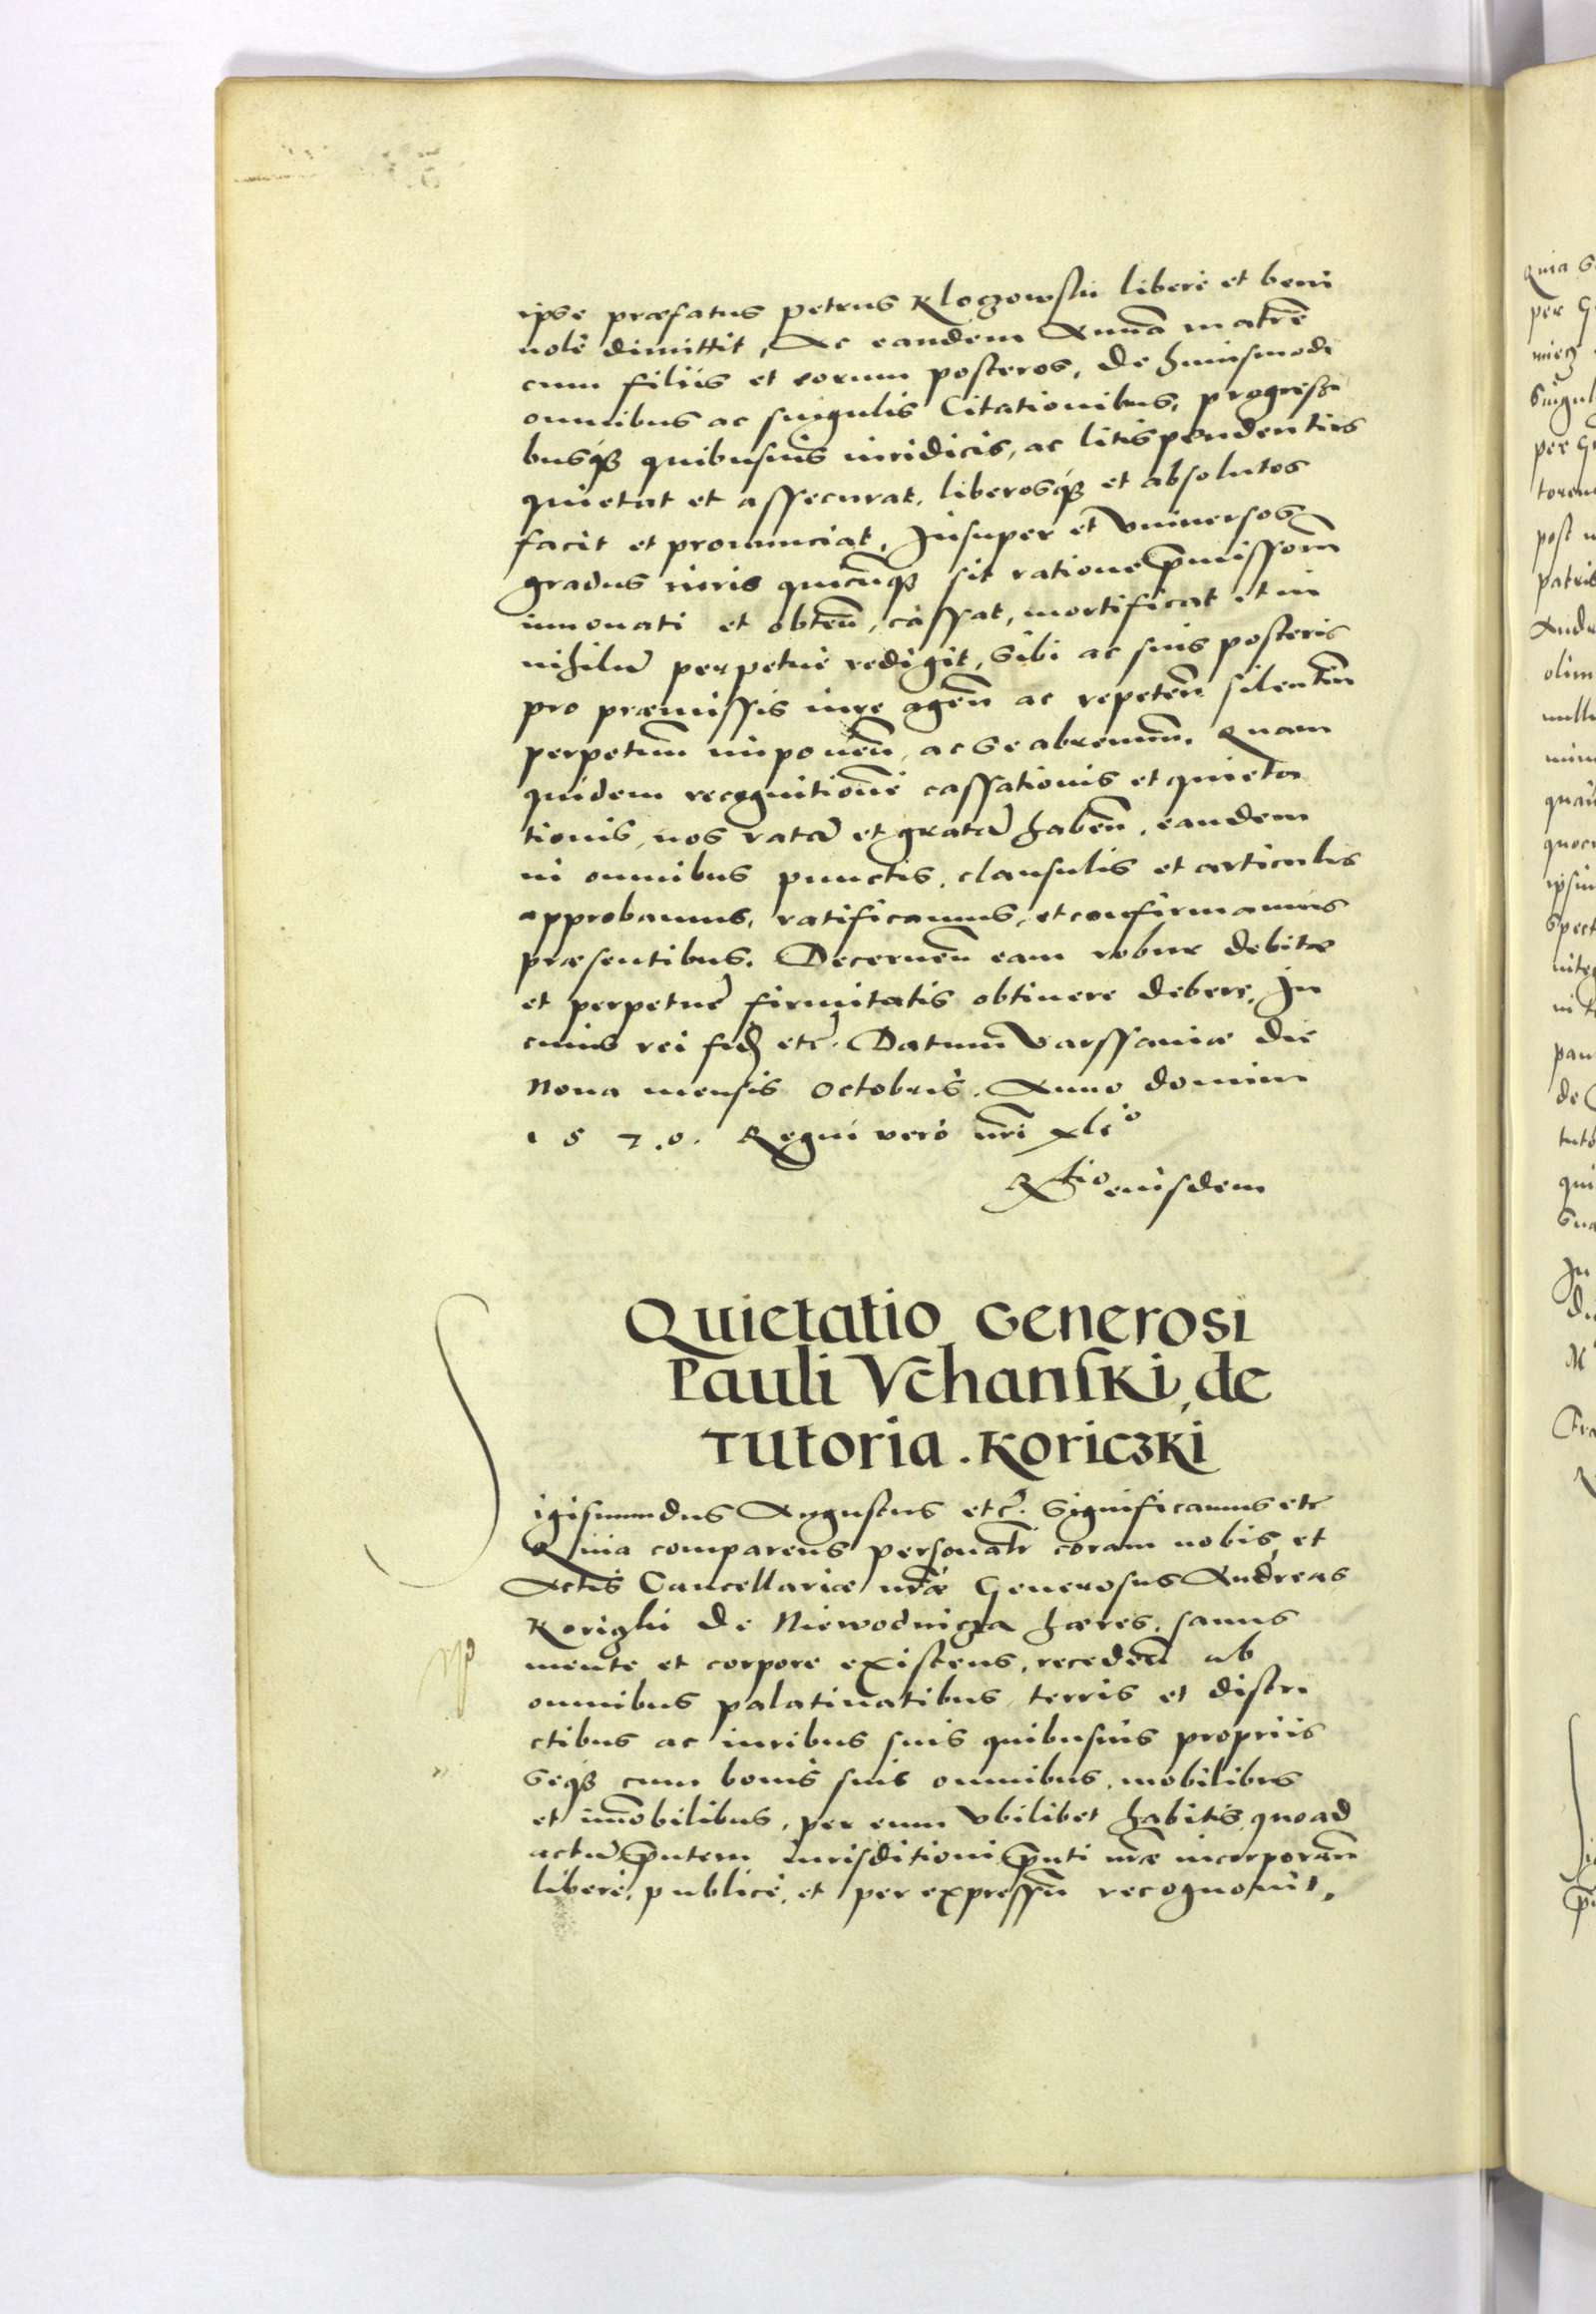 ipse præfatus Petrus Kloczowskii liberè et beni
uolè dimittit, Ac eandem Annã matrẽ
cum filiis et eorum posteros, de huiusmodi
omnibus ac singulis Citationibus, progressi
busq́ꝫ quibusuis iuridicis, ac litispendentiis
quietat et assecurat, liberosq́ꝫ et absolutos
facit et pronunciat, Insuper et vniuersos
gradus iuris quicũqꝫ sit ratione p̃missorũ
innouati et obteñ, cassat, mortificat et in
nihilũ perpetuè redigit, Sibi ac suis posteris
pro præmissis iure ageñ ac repeteñ silentiũ
perpetuũ imponeñ, ac Se abrenunc̃. Quam
quidem recognitionẽ cassationis et quieta
tionis, nos ratã et gratã habeñ, eandem
in omnibus punctis, clausulis et articulis
approbamus, ratificamus, et confirmamus
præsentibus. Decerneñ eam robur debitæ
et perpetuę firmitatis obtinere debere, In
cuius rei fidẽ etc̃. Datum Varssauiæ die
Nona mensis Octobris. Anno domini
1 5 7.0. Regni verò nr̃i xliº
Rtio eiusdem
Quietatio Generosi
Pauli Vchanski, de
Tutoria . Koriczki
Sigismundus Augustus etc̃. Significamus etc̃
Quia comparens personalr̃ coram nobis et
Actis Cancellariæ nr̃æ Generosus Andreas
Koriczki de Niewodnicza hæres, sanus
mente et corpore existens, recedeñ ab
omnibus palatinatibus, terris et distri
ctibus ac iuribus suis quibusuis propriis
Seqꝫ cum bonis suis omnibus, mobilibus
et im̃obilibus, per eum vbilibet habitis, quoad
actũ p̃ntem iurisditioni p̃nti nr̃æ incorporañ
liberè, publicè, et per expressũ recognouit,